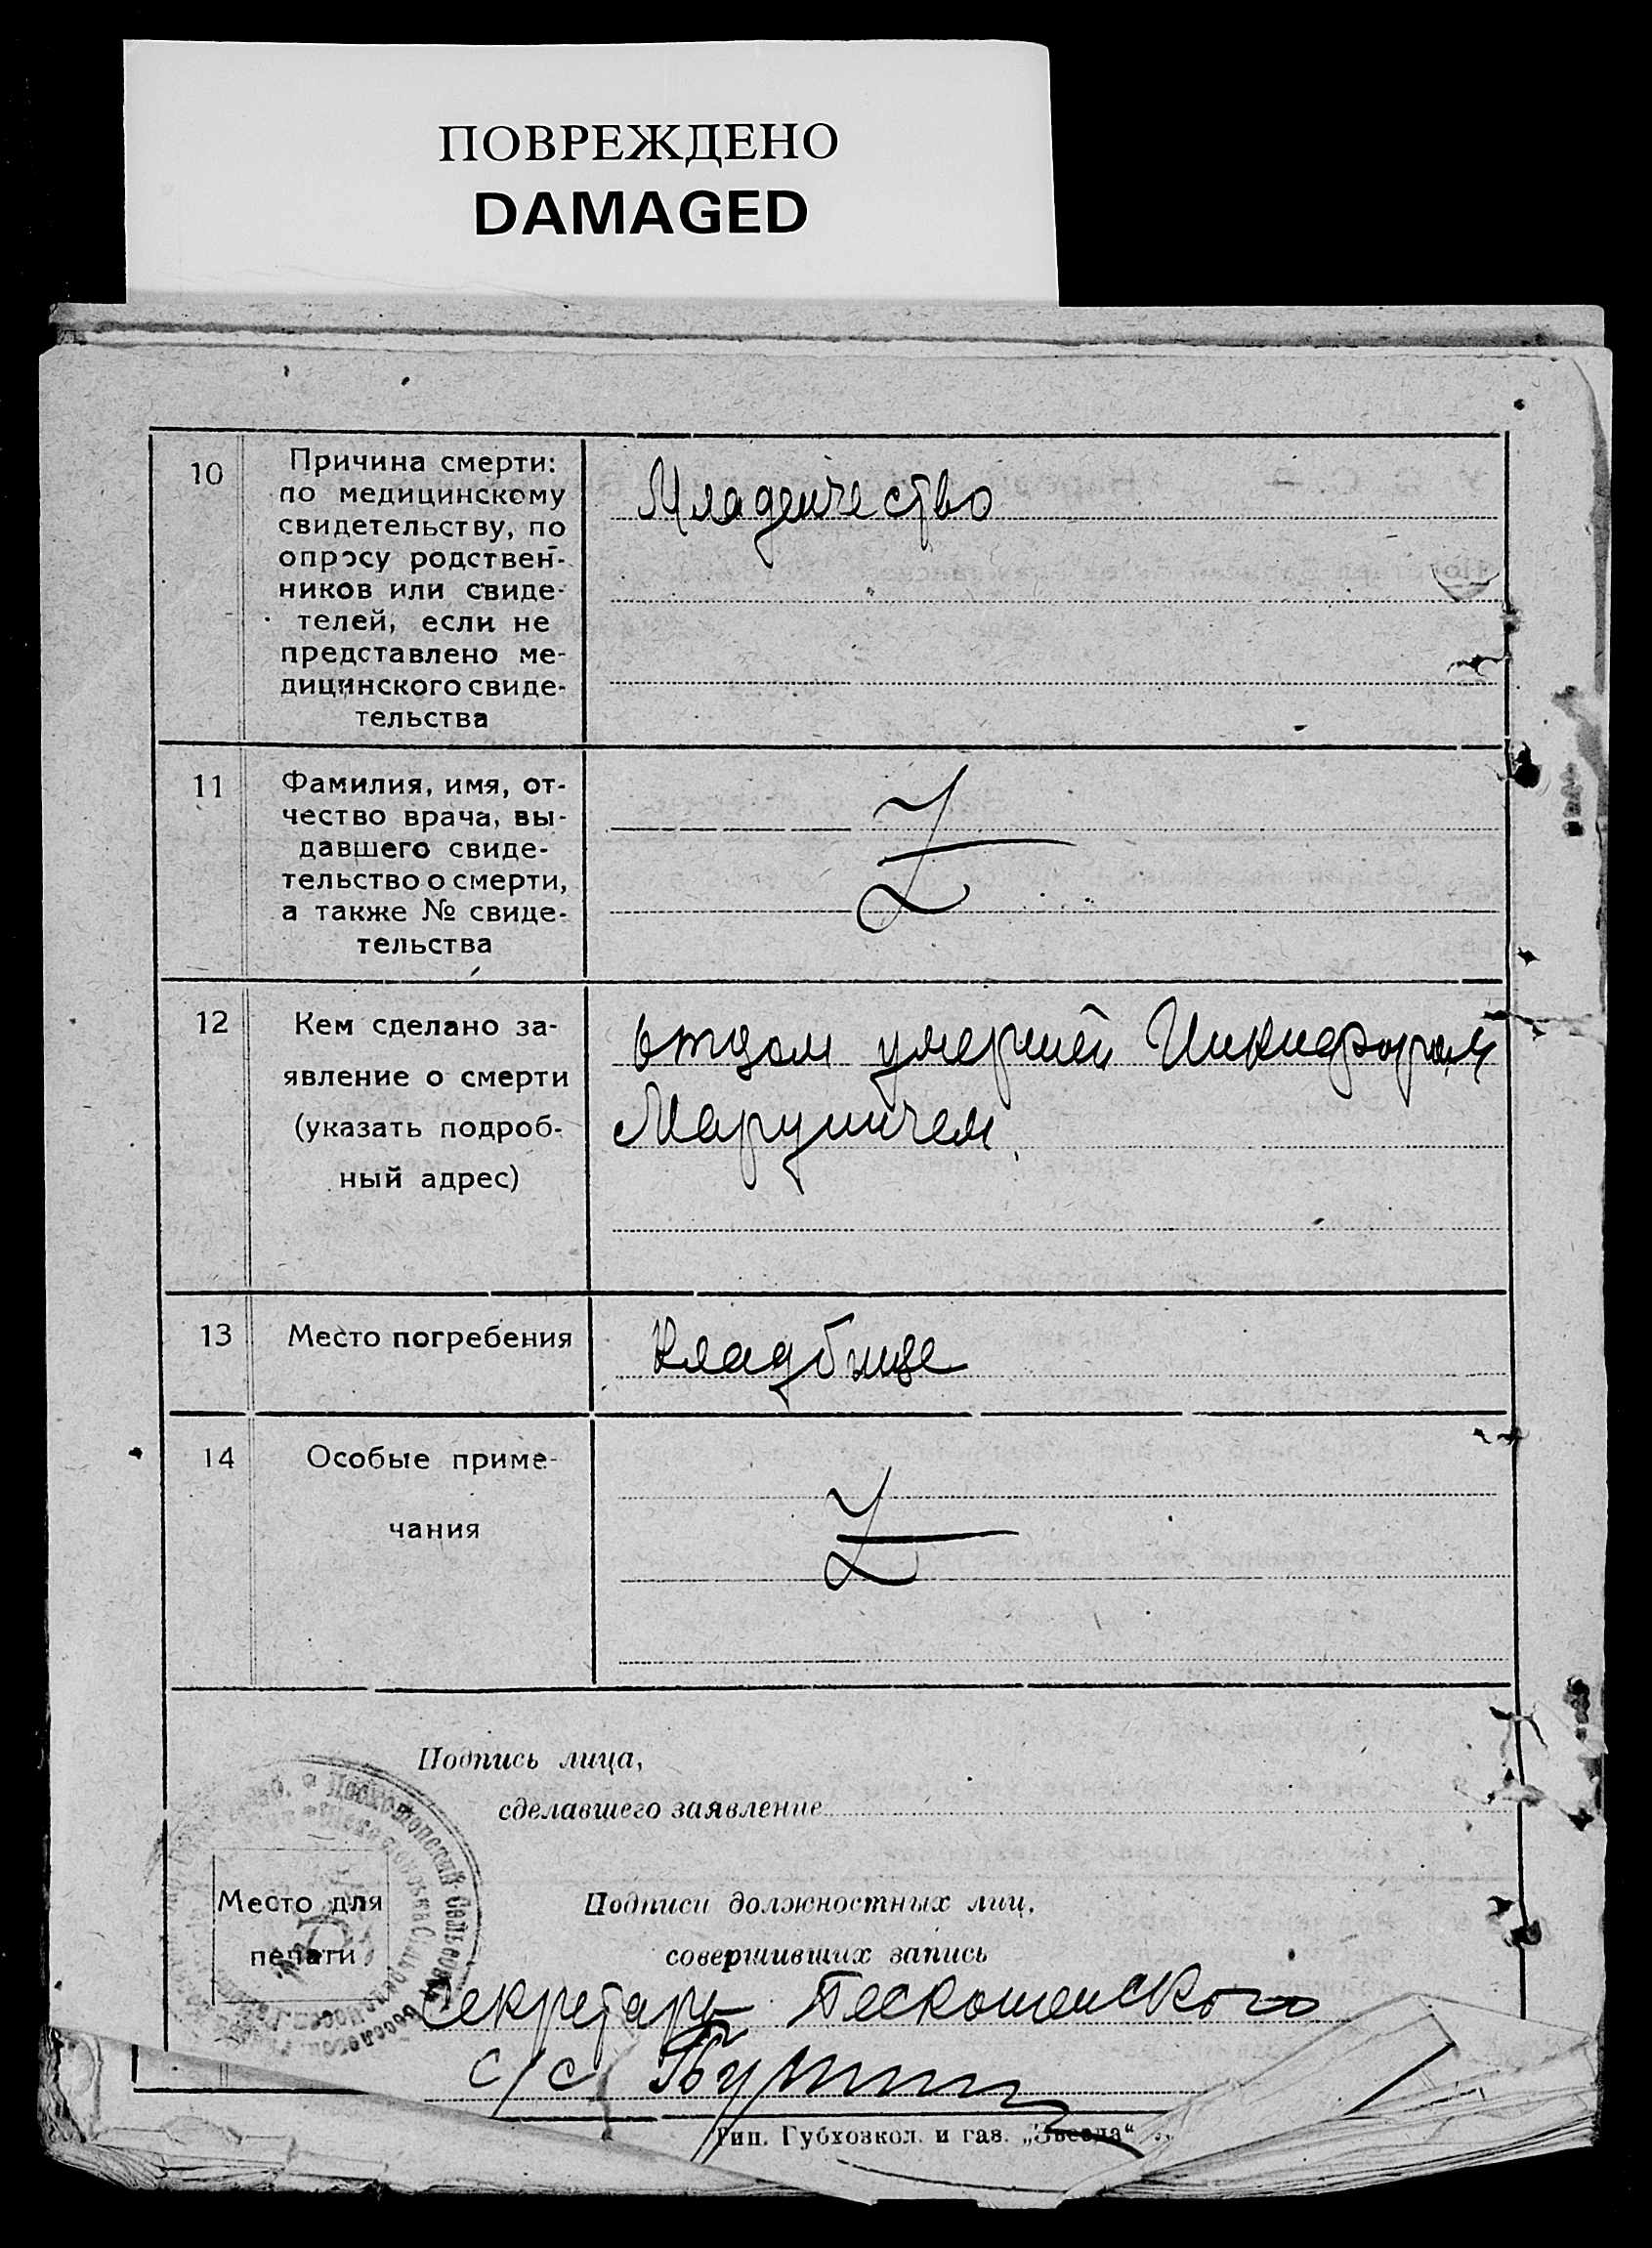 ПОВРЕЖДЕНО
DAMAGED
10
Причина смерти:
по медицинскому
свидетельству, по
опросу родствен-
ников или свиде-
телей, если не
представлено ме-
дицинского свиде-
тельства
Младенчество
11
Фамилия, имя, от-
чество врача, вы-
давшего свиде-
тельство о смерти,
а также № свиде-
тельства
Z
12
Кем сделано за-
явление о смерти
(указать подроб-
ный адрес)
отцом умершей
Марущичем
13
Место погребения
Кладбище
14
Особые приме-
чания
Z
Подпись лица,
сделавшего заявление
Место для
печати
Подписи должностных лиц,
совершивших запись
Секретарь Пескошенского
с/с
Тип. Губхозкол. и газ. „Звезда“